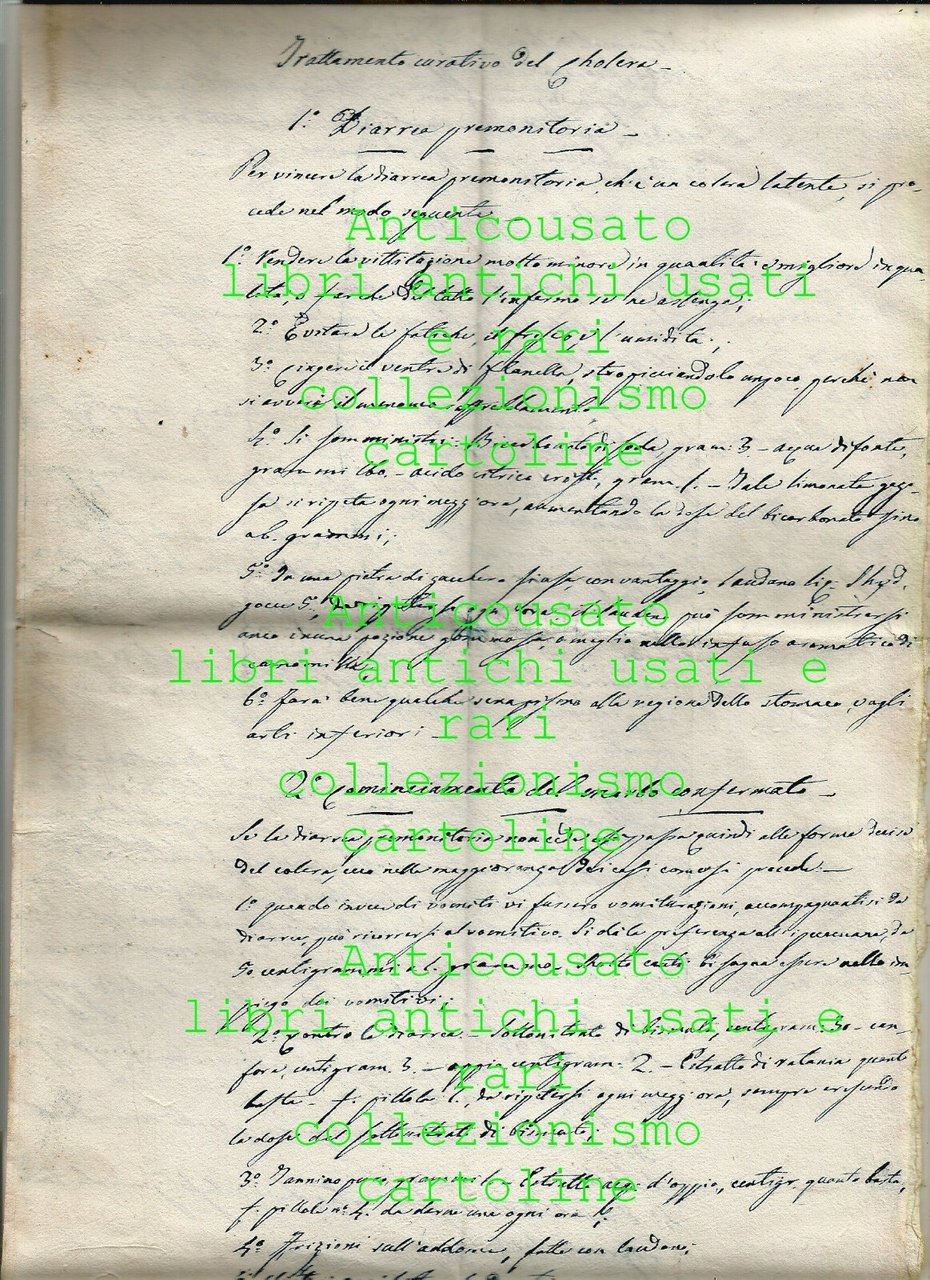 Trattamento curativo del Cholera -
1.° Diarrea premonitoria -
Per vincere la diarrea premonitoria, ch'è un colera latente, si pro-
cede nel modo seguente
Anticousato
1.° Rendere la vittitazione molto minore in quantità e migliore in qua-
libri antichi usati
lità, o far che del tutto l'infermo se ne astenga;
2.° Evitare le fatiche, il fresco, e l'umidità;
e rari
3.° Cingere il ventre di flanella, stropicciandolo un poco, perchè non
collezionismo
si avveri il menomo raffreddamento
4.° Si somministri: Bicarbonato di soda gram: 3 - acqua di fonte,
cartoline
grammi - acido citrico gram. 1. - Tale limonata gazo-
sa si ripeta ogni mezz'ora, aumentando la dose del bicarbonato sino
a 6. grammi;
5.° In una pietra di zucchero si usa, con vantaggio, laudano liq.
gocce 5, da ripetersi ogni ora. Il laudano può somministrarsi
Anticousato
anco in una pozione gommosa, o meglio nello infuso aromatico di
camomilla;
libri antichi usati e
6.° Farà bene qualche senapismo alla regione dello stomaco, o agli
rari
arti inferiori -
collezionismo
2.° Cominciamento del morbo confermato -
cartoline
Se la diarrea premonitoria non cede, e si passa quindi alle forme decise
del colera, ecco nella maggioranza dei casi come si procede: -
1.° quando invece di vomiti vi fussero vomiturazioni, accompagnantisi da
diarrea, può ricorrersi al vomitivo. Si dia la preferenza all'ipecacuana, da
Anticousato
50 centigrammi a 1. grammo - cauti bisogna essere nello im
piego dei vomitivi;
libri antichi usati e
2.° Contro la diarrea. - Sottonitrato di bismuto, centigram: 30 - can-
fora, centigram. 3. - oppio centigram: 2. - Estratto di ratania quanto
rari
basta - f. pillola 1. da ripetersi ogni mezz'ora, sempre crescendo
la dose del sottonitrato di bismuto;
collezionismo
3.° Tannino puro grammi 1. - Estratto acq. d'oppio, centigr. quanto basta,
cartoline
f. pillole n.° 4. da darne una ogni ora
4.° Frizioni sull'addome, fatte con laudano;